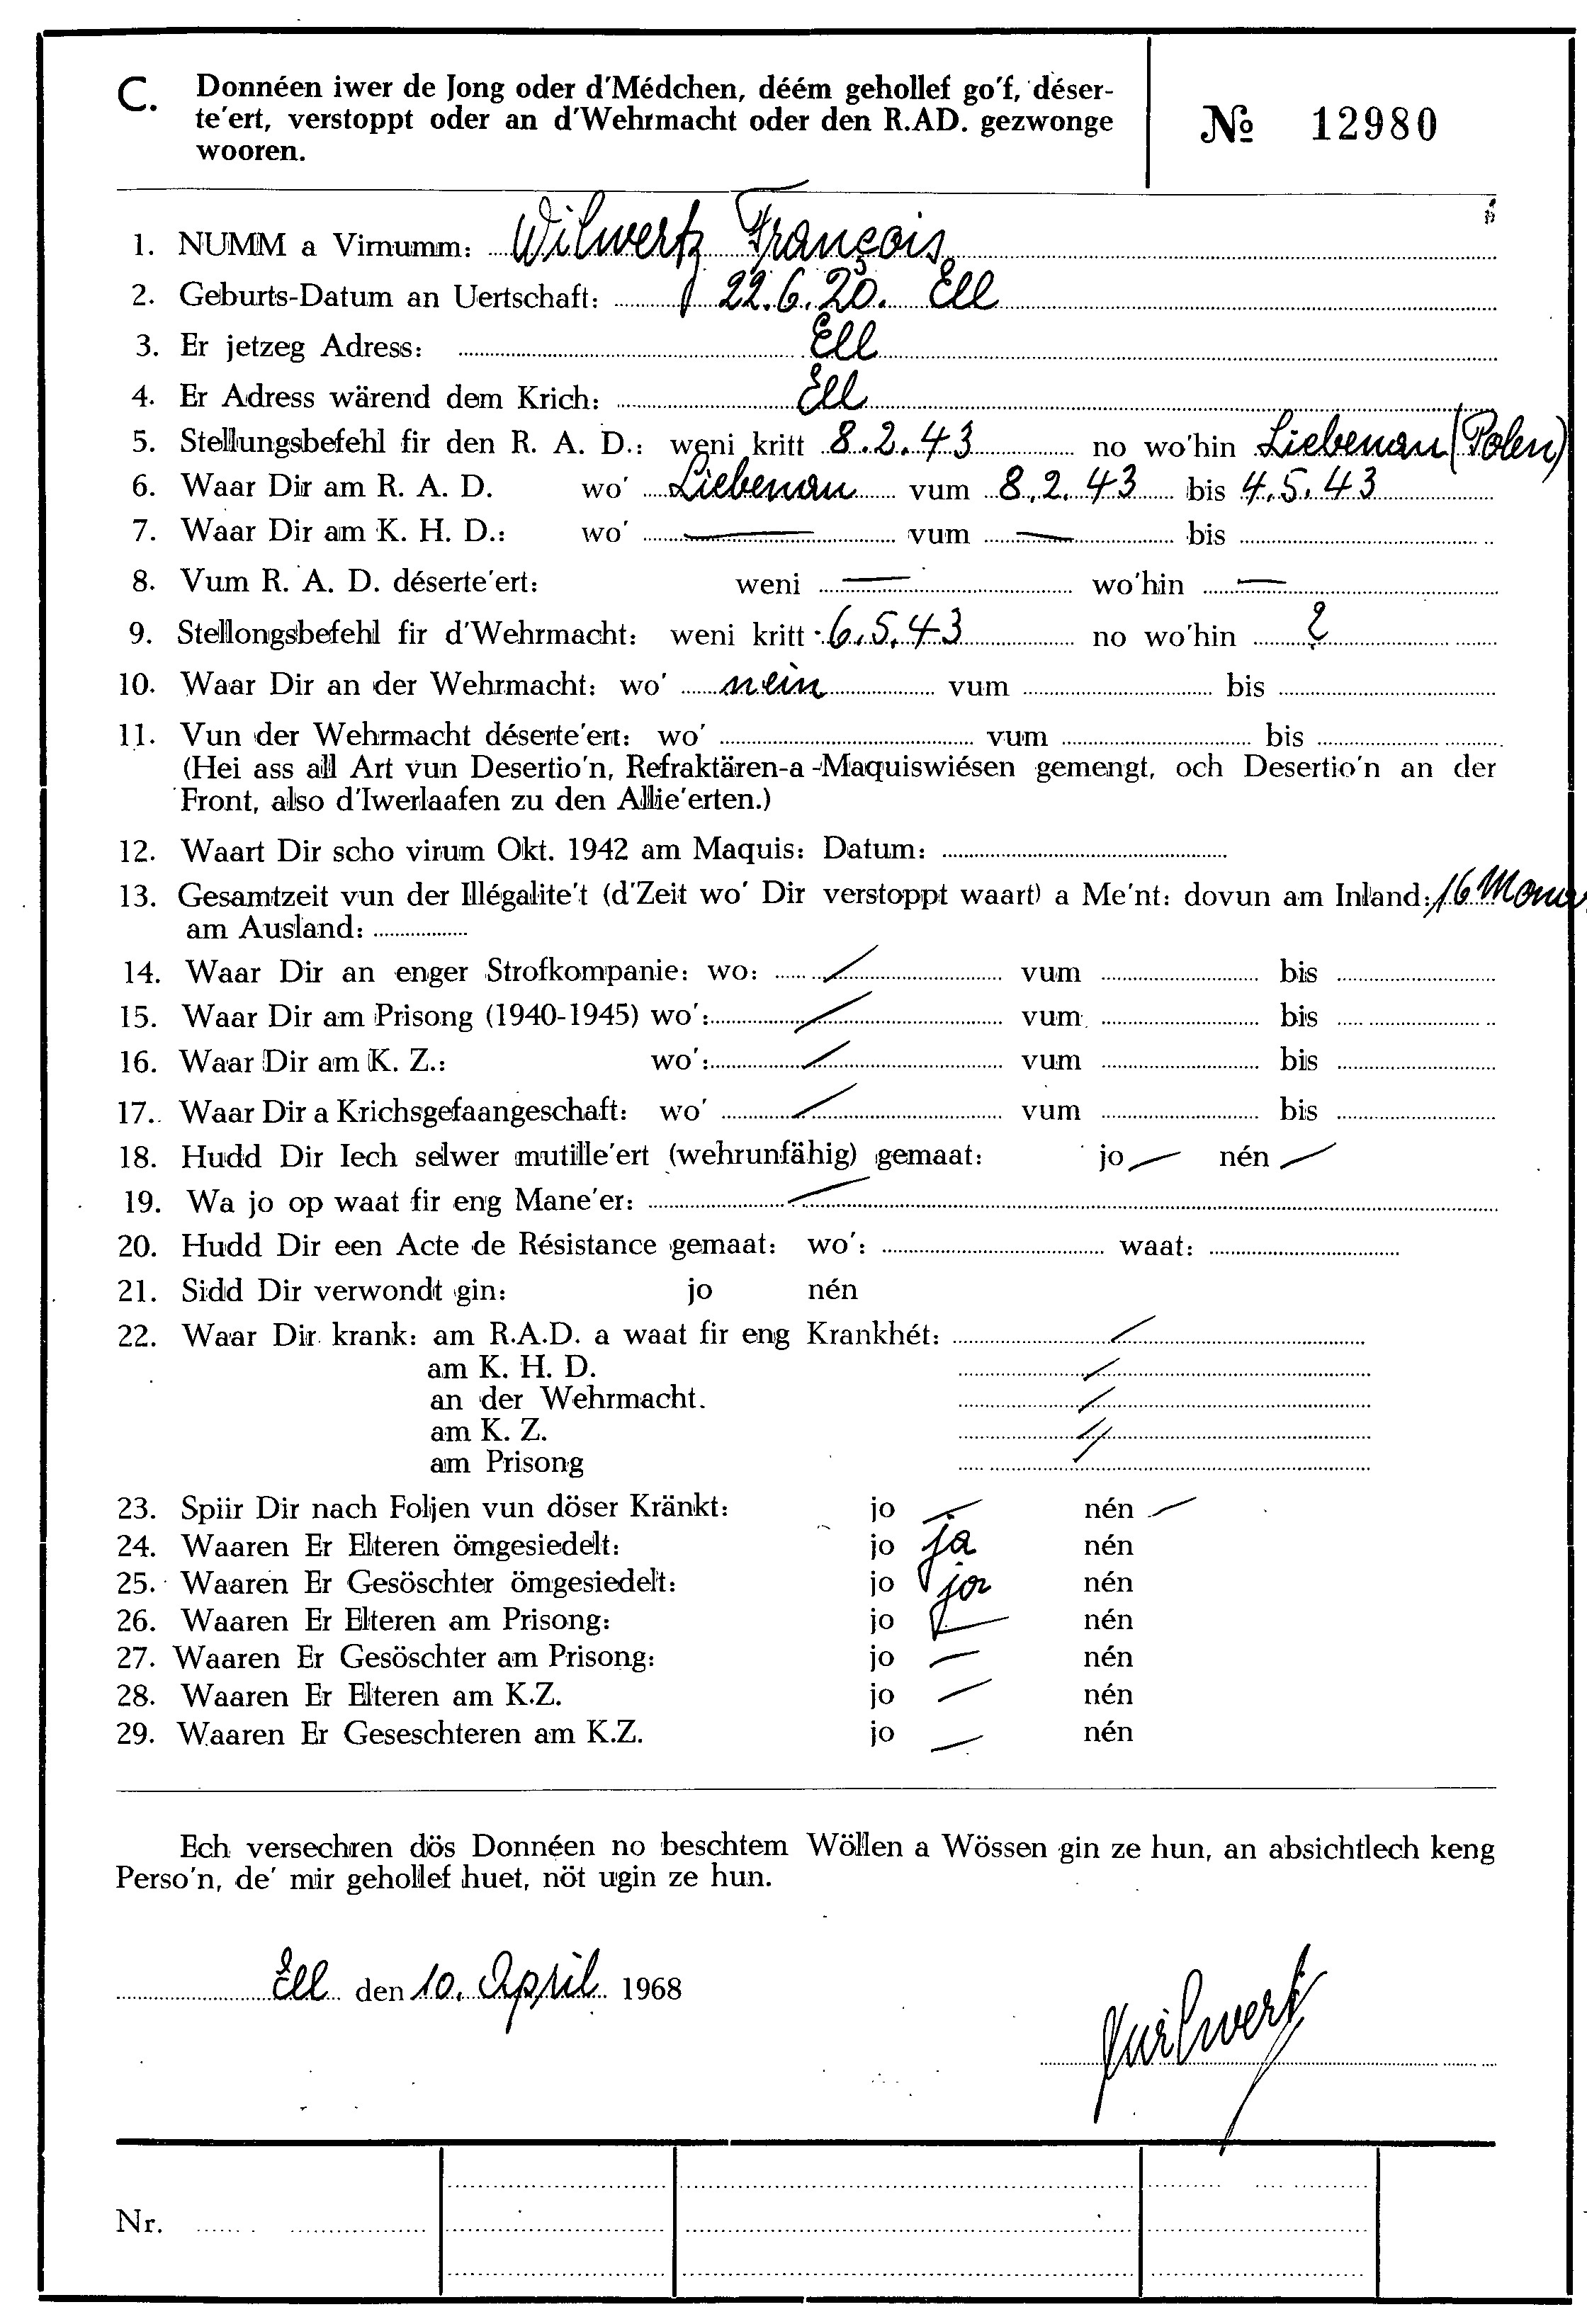 C. Donnéen iwer de Jong oder d'Médchen, déém gehollef go'f, déser-
te'ert, verstoppt oder an d'Wehrmacht oder den R.AD. gezwonge
wooren.
№ 12980
1. NUMM a Virnumm: Wilwertz François
2. Geburts-Datum an Uertschaft: 22.6.20. Ell
3. Er jetzeg Adress: Ell
4. Er Adress wärend dem Krich: Ell
5. Stellungsbefehl fir den R. A. D.: weni kritt 8.2.43 no wo'hin Liebenau (Polen)
6. Waar Dir am R. A. D. wo' Liebenau vum 8.2.43 bis 4.5.43
7. Waar Dir am K. H. D.: wo' — vum — bis
8. Vum R. A. D. déserte'ert: weni — wo'hin —
9. Stellongsbefehl fir d'Wehrmacht: weni kritt 6.5.43 no wo'hin ?
10. Waar Dir an der Wehrmacht: wo' nein vum bis
11. Vun der Wehrmacht déserte'ert: wo' vum bis
(Hei ass all Art vun Desertio'n, Refraktären-a-Maquiswiésen gemengt, och Desertio'n an der
Front, also d'Iwerlaafen zu den Allie'erten.)
12. Waart Dir scho virum Okt. 1942 am Maquis: Datum:
13. Gesamtzeit vun der Illégalite't (d'Zeit wo' Dir verstoppt waart) a Me'nt: dovun am Inland: 16
am Ausland:
14. Waar Dir an enger Strofkompanie: wo: / vum bis
15. Waar Dir am Prisong (1940-1945) wo': / vum bis
16. Waar Dir am K. Z.: wo': / vum bis
17. Waar Dir a Krichsgefaangeschaft: wo' / vum bis
18. Hudd Dir Iech selwer mutille'ert (wehrunfähig) gemaat: jo — nén —
19. Wa jo op waat fir eng Mane'er: /
20. Hudd Dir een Acte de Résistance gemaat: wo': waat:
21. Sidd Dir verwondt gin: jo nén
22. Waar Dir krank: am R.A.D. a waat fir eng Krankhét: /
am K. H. D. /
an der Wehrmacht. /
am K. Z. /
am Prisong /
23. Spiir Dir nach Foljen vun döser Kränkt: jo — nén —
24. Waaren Er Elteren ömgesiedelt: jo ja nén
25. Waaren Er Gesöschter ömgesiedelt: jo ja nén
26. Waaren Er Elteren am Prisong: jo — nén
27. Waaren Er Gesöschter am Prisong: jo — nén
28. Waaren Er Elteren am K.Z. jo — nén
29. Waaren Er Geseschteren am K.Z. jo — nén
Ech versechren dös Donnéen no beschtem Wöllen a Wössen gin ze hun, an absichtlech keng
Perso'n, de' mir gehollef huet, nöt ugin ze hun.
Ell den 10. April 1968
Wilwertz
Nr.